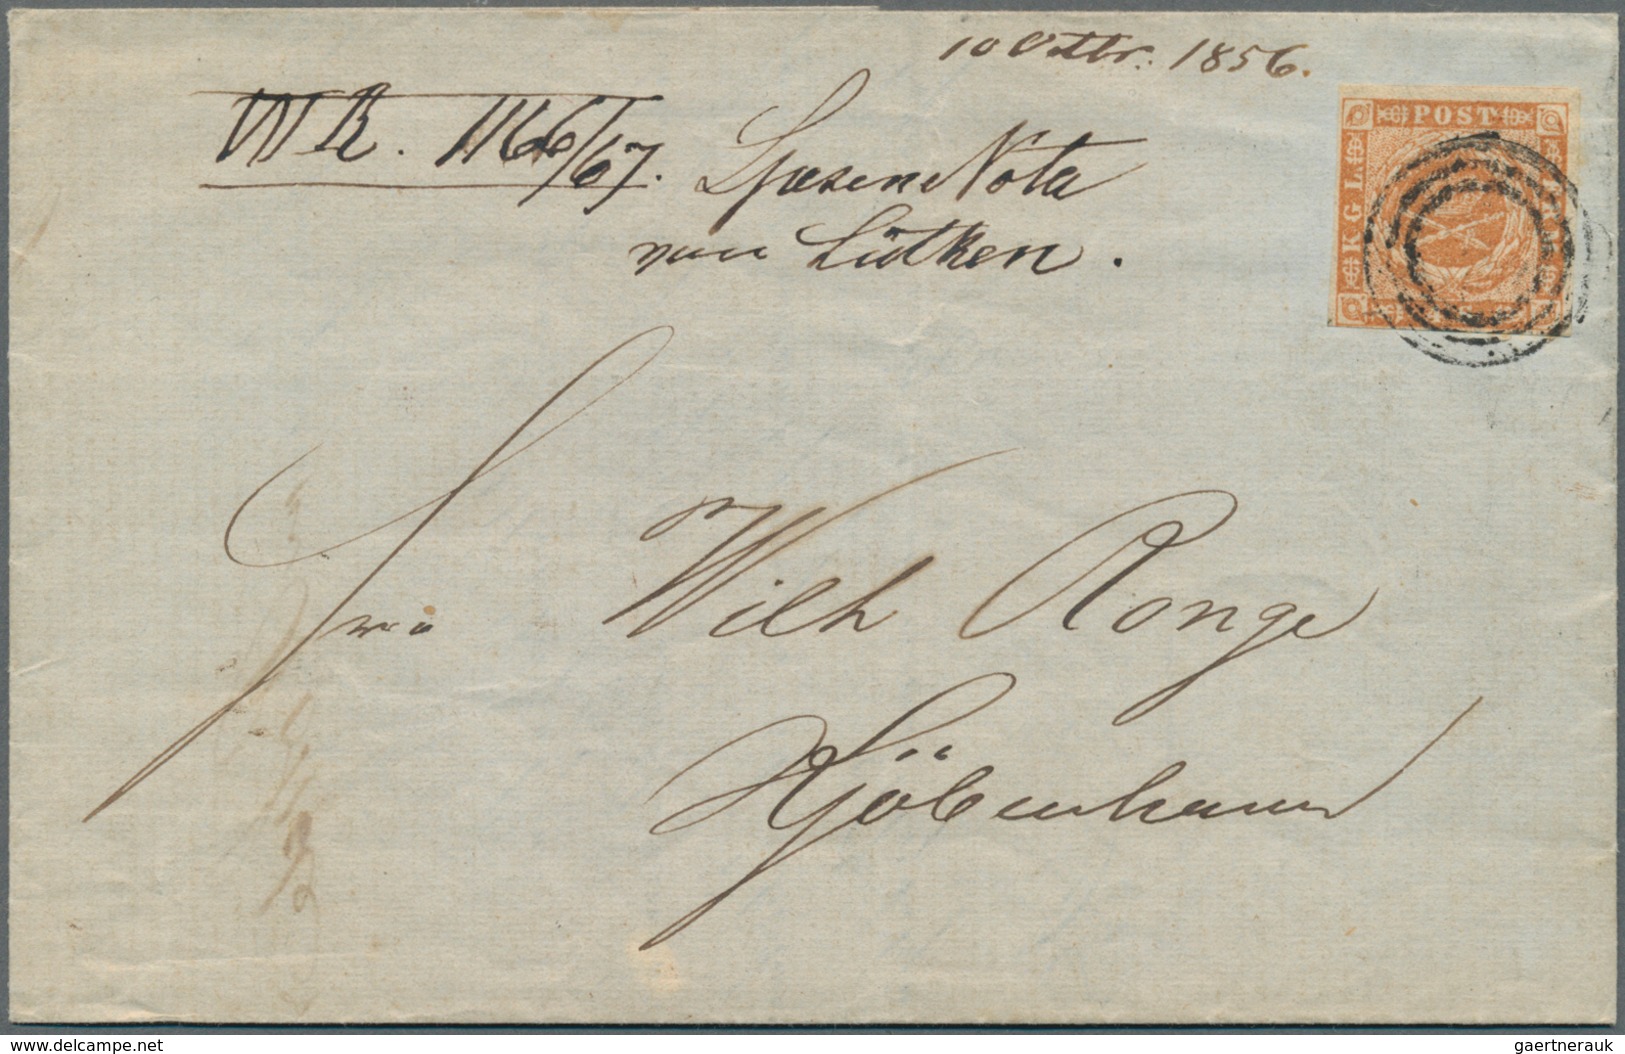 10 Octbr. 1856.
WR. 1166/67. Spesen Nota
von Lütken.
POST
KGL
Wilh Ronge
Kjöbenhavn
www.delcampe.net
gaertnerauk